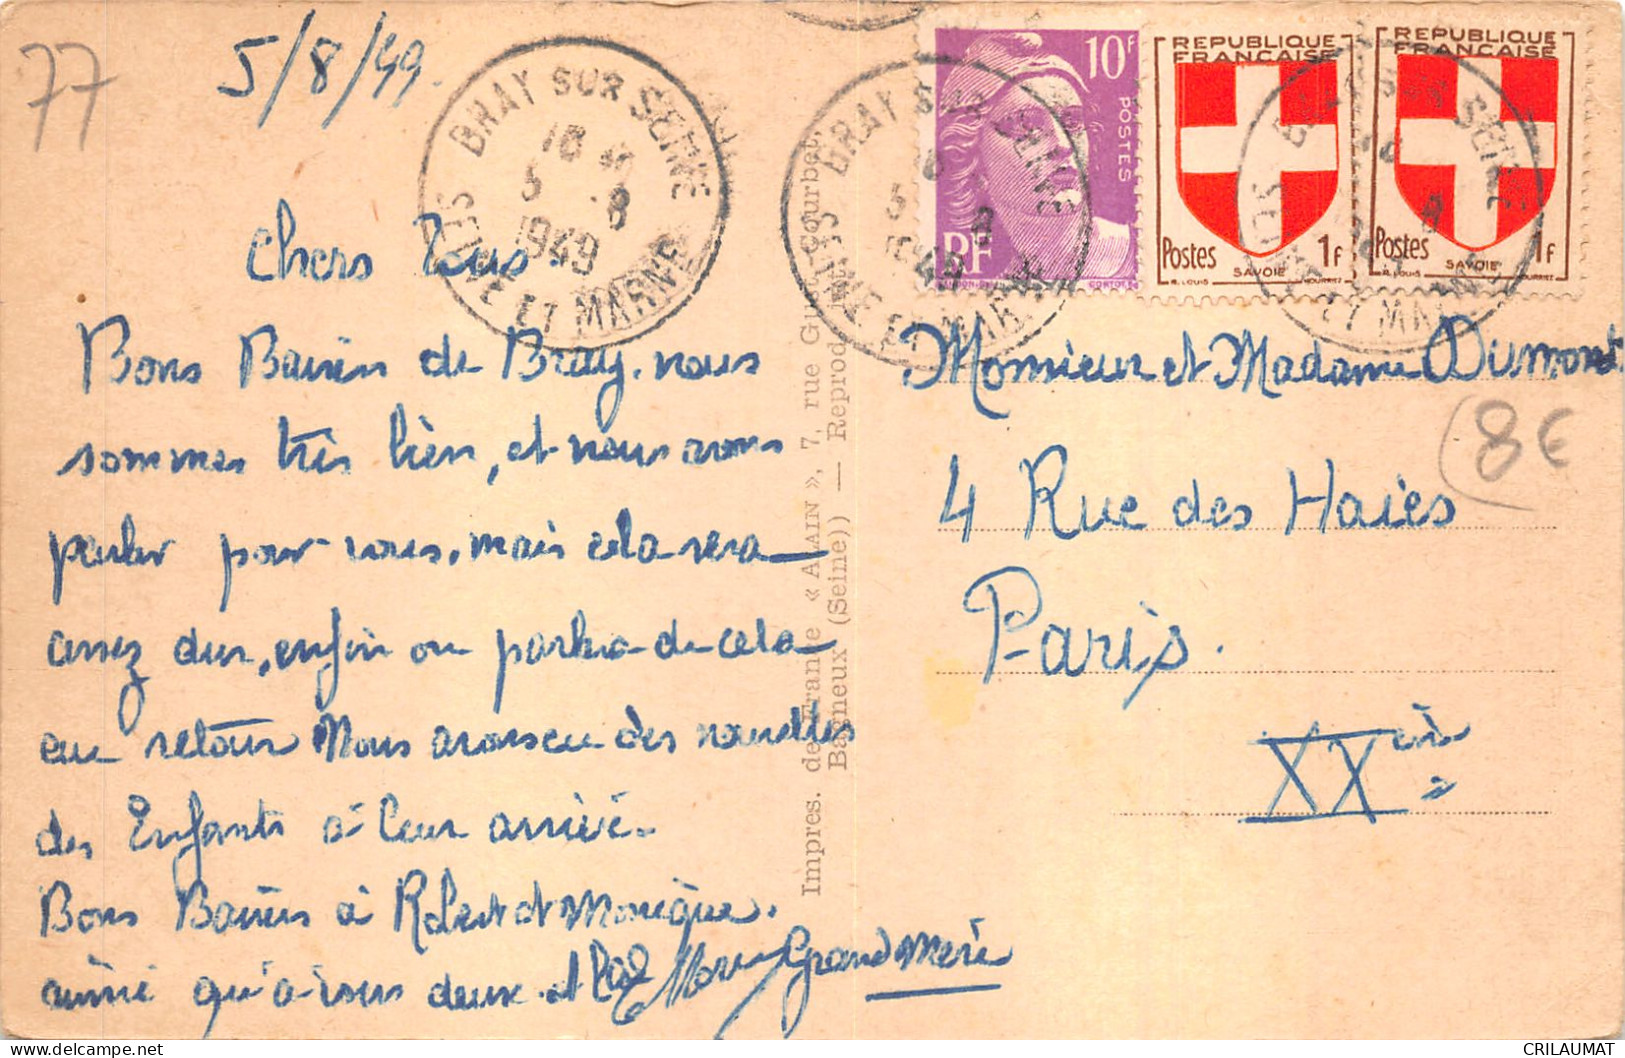 77
5/8/49.
BRAY SUR SEINE
18
5 8
1949
SEINE ET MARNE
10F
POSTES
RF
REPUBLIQUE
FRANÇAISE
Postes 1F
SAVOIE
REPUBLIQUE
FRANÇAISE
Postes 1F
SAVOIE
Chers Tous
Bons Baisers de Bray. nous
sommes très bien, et nous avons
parler pour vous, mais cela sera
assez dur, enfin on parlera de cela
au retour Nous avons eu des nouvelles
des Enfants à leur arrivé.
Bons Baisers à Robert et Monique.
ainsi qu'à vous deux et
Grand Mère
Impres. de Franie « ALAIN », 7, rue Gu Courbet,
Bagneux (Seine)) — Reprod.
Monsieur et Madame Dumont
8€
4 Rue des Haies
Paris.
XXeme
CRILAUMAT